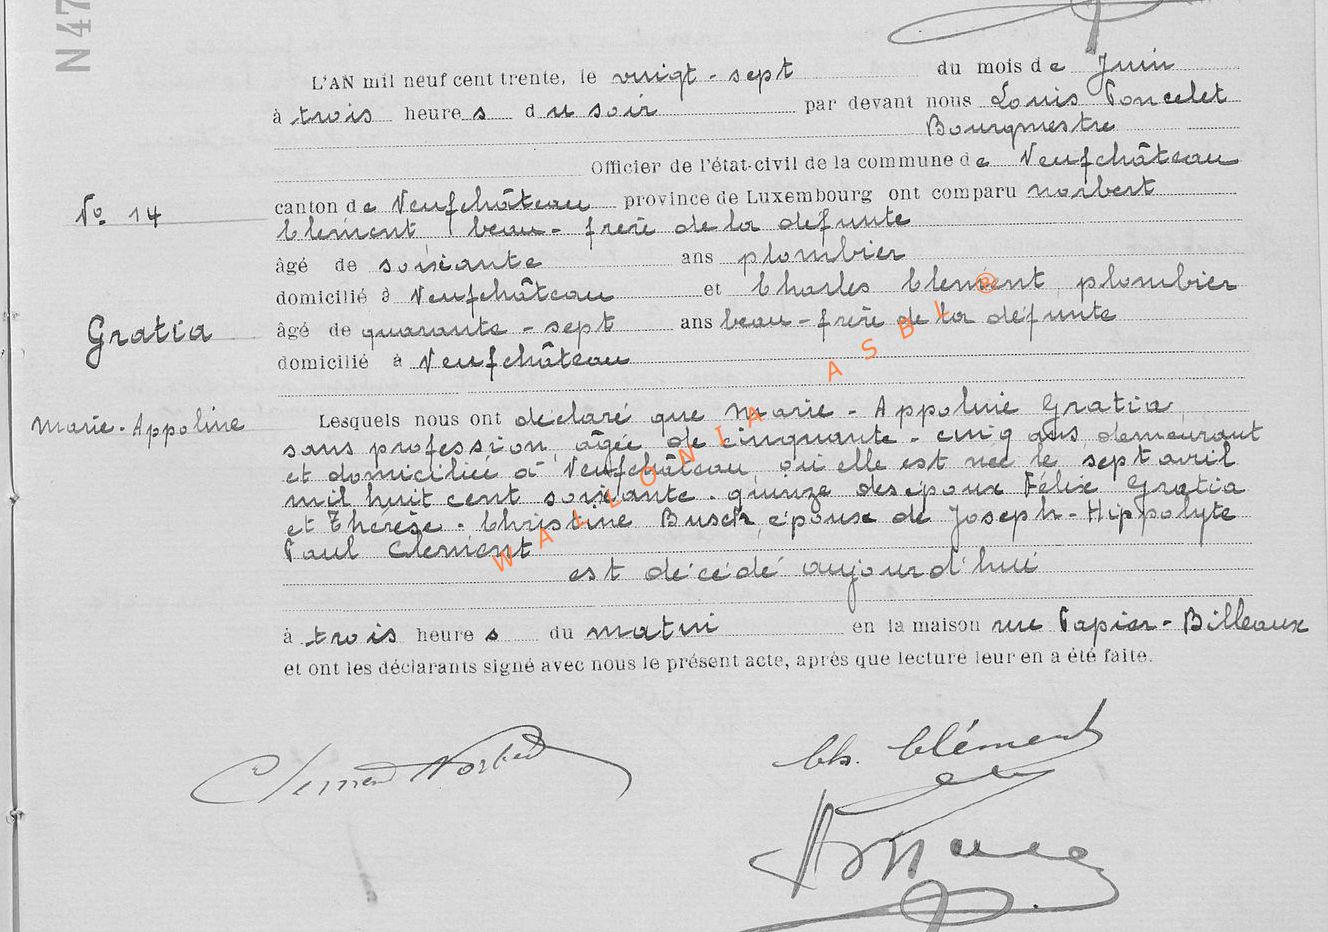 N 47
L'AN mil neuf cent trente, le vingt-sept du mois de Juin
à trois heures du soir par devant nous Louis Poncelet
Bourgmestre
Officier de l'état-civil de la commune de Neufchâteau
canton de Neufchâteau province de Luxembourg ont comparu Norbert
Clément beau-frère de la défunte
âgé de soixante ans plombier
domicilié à Neufchâteau et Charles Clement plombier
âgé de quarante-sept ans beau-frère de la défunte
domicilié à Neufchâteau
No 14
Gratia
Marie-Appoline
Lesquels nous ont déclaré que Marie-Appolnie Gratia
sans profession âgée de cinquante-cinq ans demeurant
et domiciliée à Neufchâteau où elle est née le sept avril
mil huit cent soixante-quinze des époux Félix Gratia
et Thérèse-Christine Busch, épouse de Joseph-Hippolyte
Paul Clément
est décédé aujourd'hui
à trois heures du matin en la maison rue Papier-Billeaux
et ont les déclarants signé avec nous le présent acte, après que lecture leur en a été faite.
Clément Norbert
Ch. Clément
WALLONIA ASBL ®